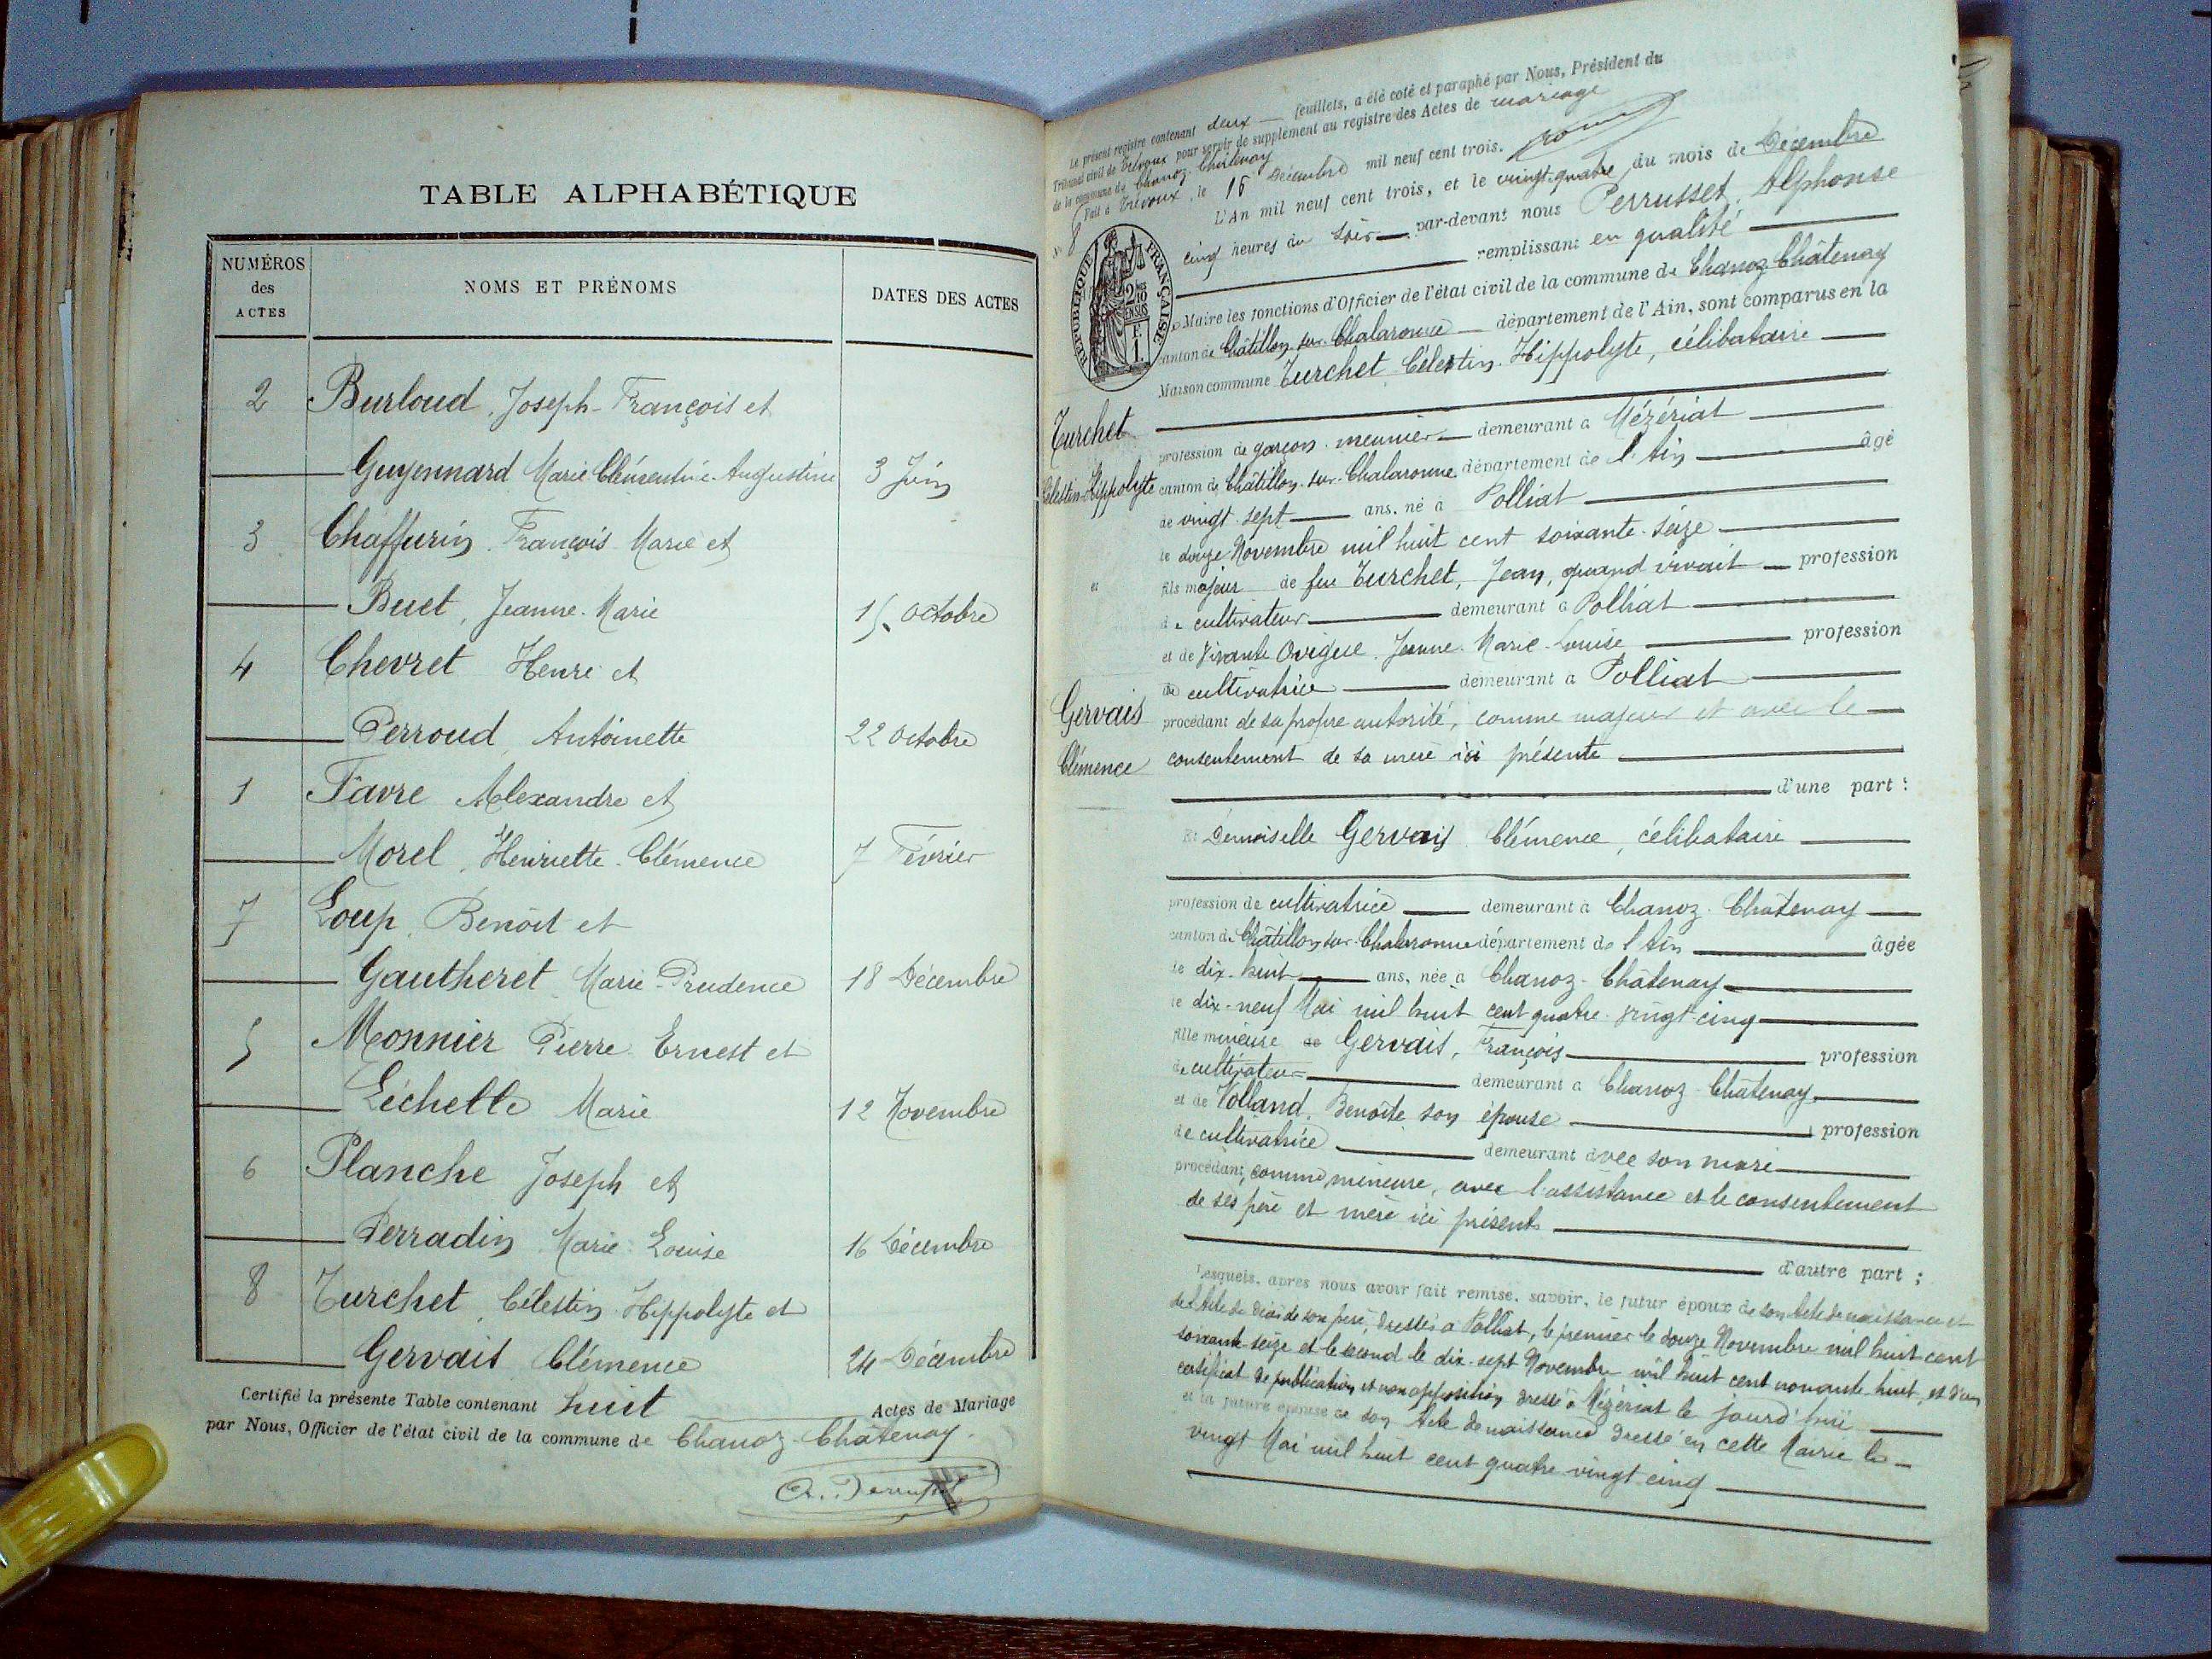 TABLE ALPHABÉTIQUE
NUMÉROS
des
ACTES
NOMS ET PRÉNOMS
DATES DES ACTES
2 Burloud, Joseph-François et
Guyennard Marie Clémentine Augustine 3 Juin
3 Chaffurin François Marie et
Buet, Jeanne-Marie 15 Octobre
4 Chevret Henri et
Perroud, Antoinette 22 Octobre
1 Favre Alexandre et
Morel, Henriette-Clémence 7 Février
7 Loup, Benoît et
Gautheret Marie-Prudence 18 Décembre
5 Monnier Pierre Ernest et
Léchelle Marie 12 Novembre
6 Planche Joseph et
Perradin Marie Louise 16 Décembre
8 Turchet, Célestin-Hippolyte et
Gervais Clémence 24 Décembre
Certifié la présente Table contenant huit Actes de Mariage
par Nous, Officier de l'état civil de la commune de Chanoz-Châtenay.
Le présent registre contenant deux feuillets, a été coté et paraphé par Nous, Président du
Tribunal civil de Trévoux pour servir de supplément au registre des Actes de mariage
de la commune de Chanoz-Châtenay
Fait à Trévoux, le 15 Décembre mil neuf cent trois.
N° 8
L'An mil neuf cent trois, et le vingt-quatre du mois de Décembre
cinq heures du soir par-devant nous Perrusset, Alphonse
remplissant en qualité
de Maire les fonctions d'Officier de l'état civil de la commune de Chanoz-Châtenay
canton de Châtillon-sur-Chalaronne département de l'Ain, sont comparus en la
Maison commune Turchet Célestin-Hippolyte, célibataire
RÉPUBLIQUE FRANÇAISE
2/10
EN SUS
1 F
Turchet
Célestin-Hippolyte
et
Gervais
Clémence
profession de garçon meunier demeurant à Mézériat
canton de Châtillon-sur-Chalaronne département de l'Ain âgé
de vingt-sept ans, né à Polliat
le douze Novembre mil huit cent soixante-seize
fils majeur de feu Turchet, Jean, quand vivait profession
de cultivateur demeurant à Polliat
et de vivante Ovigue Jeanne-Marie-Louise profession
de cultivatrice demeurant à Polliat
procédant de sa propre autorité, comme majeur et avec le
consentement de sa mère ici présente
d'une part :
Et Demoiselle Gervais Clémence, célibataire
profession de cultivatrice demeurant à Chanoz-Châtenay
canton de Châtillon-sur-Chalaronne département de l'Ain âgée
de dix-huit ans, née à Chanoz-Châtenay
le dix-neuf Mai mil huit cent quatre-vingt-cinq
fille mineure de Gervais, François profession
de cultivateur demeurant à Chanoz-Châtenay
et de Volland, Benoîte son épouse profession
de cultivatrice demeurant avec son mari
procédant, comme mineure, avec l'assistance et le consentement
de ses père et mère ici présents
d'autre part ;
Lesquels, après nous avoir fait remise, savoir, le futur époux de son Acte de naissance et
de l'Acte de décès de son père, dressés à Polliat, le premier le douze Novembre mil huit cent
soixante-seize et le second le dix-sept Novembre mil huit cent nonante-huit, et d'un
certificat de publication et non opposition dressé à Mézériat le jourd'hui
et la future épouse de son Acte de naissance dressé en cette Mairie le
vingt Mai mil huit cent quatre vingt cinq